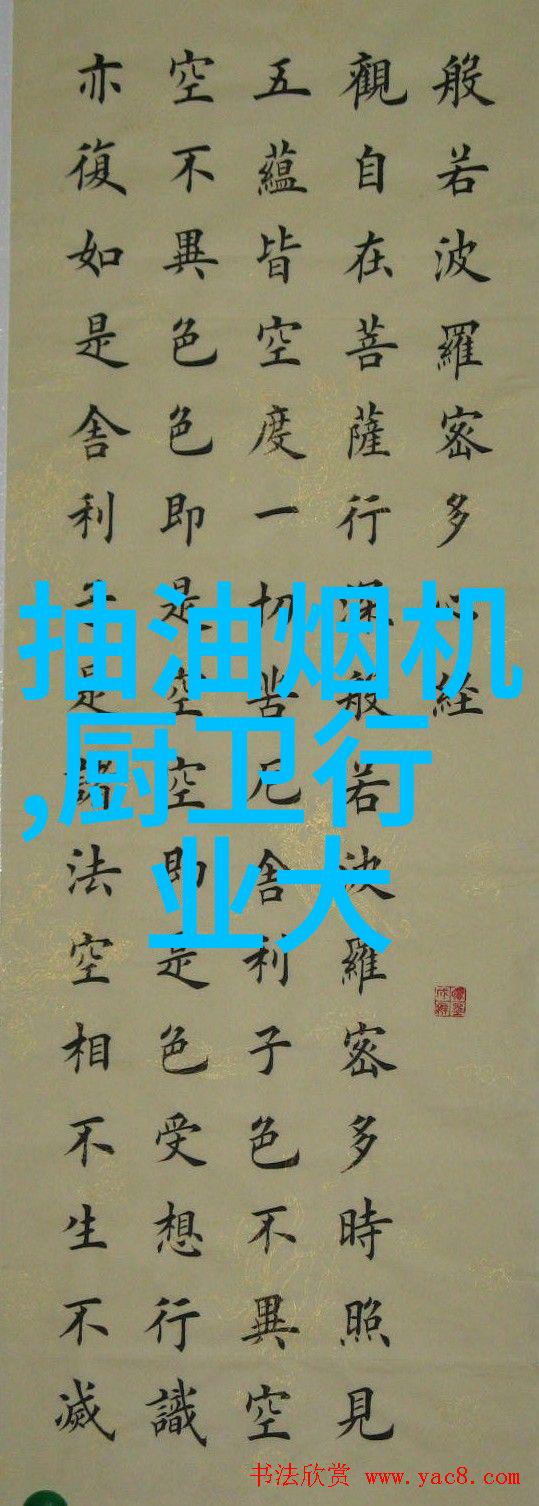 般若波羅密多心経
觀自在菩薩行深般若波羅密多時照見
五蘊皆空度一切苦厄舍利子色不異空
空不異色色即是空空即是色受想行識
亦復如是舍利子是諸法空相不生不滅
抽油烟机
,厨卫行
业大
书法欣赏 www.yac8.com